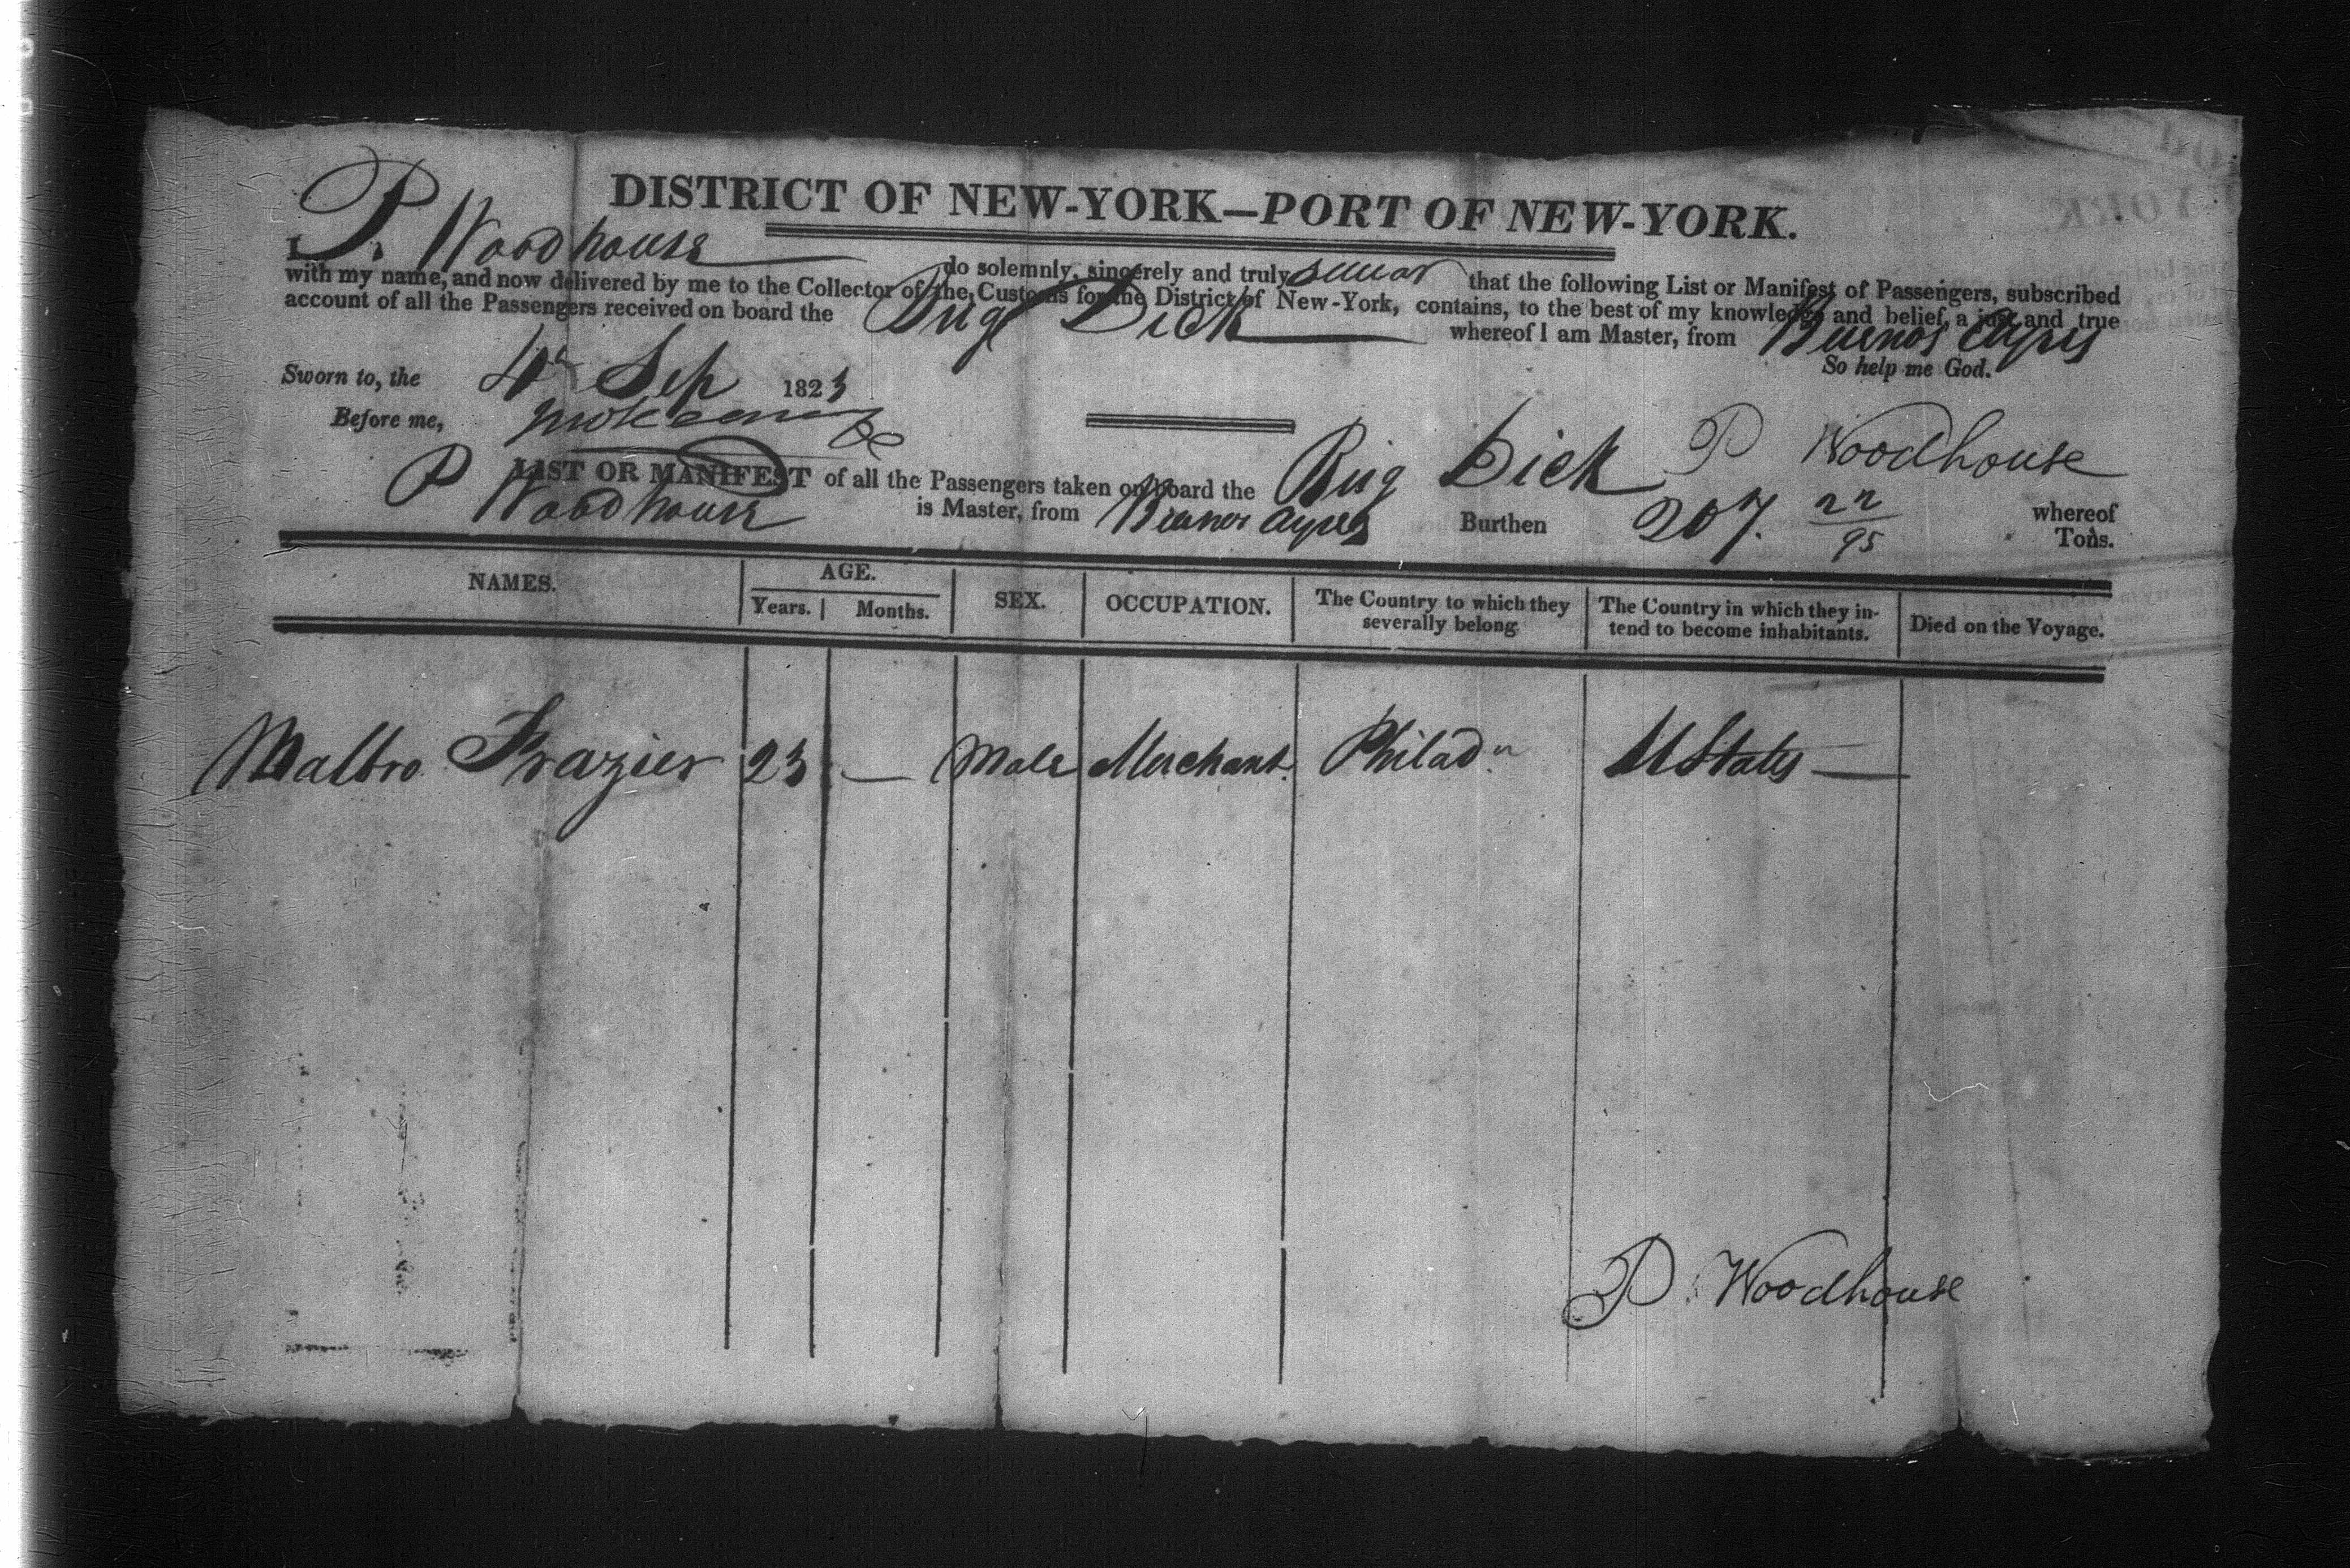 DISTRICT OF NEW-YORK—PORT OF NEW-YORK.
I, P. Woodhouse do solemnly, sincerely and truly swear that the following List or Manifest of Passengers, subscribed
with my name, and now delivered by me to the Collector of the Customs for the District of New-York, contains, to the best of my knowledge and belief, a just and true
account of all the Passengers received on board the Brig Dick whereof I am Master, from Buenos Ayres
So help me God.
Sworn to, the 4th Sep 1823
Before me,
P Woodhouse
LIST OR MANIFEST of all the Passengers taken on board the Brig Dick whereof
P Woodhouse is Master, from Buenos Ayres Burthen 207. 22/95 Tons.
NAMES. AGE. SEX. OCCUPATION. The Country to which they severally belong The Country in which they in-tend to become inhabitants. Died on the Voyage.
Years. Months.
Malbro Frazier 23 — Male Merchant. Philada U States —
P. Woodhouse